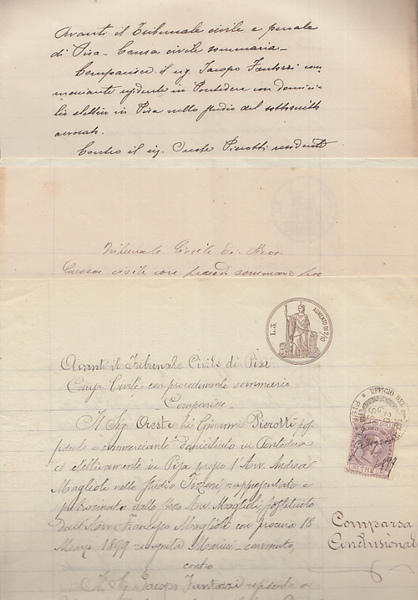 Avanti il Tribunale civile e penale
di Pisa - Causa civile sommaria -
Comparisce il sig. Jacopo Fantozzi com
merciante residente in Pontedera con domici
lio elettivo in Pisa nello studio del sottoscritto
avvocato.
Contro il sig. Oreste Pierotti residente
Tribunale Civile di Pisa
Causa civile con
L. 3
AUMENTO DI 2/10
Avanti il Tribunale Civile di Pisa
Causa Civile con procedimento sommario
Comparisce
Il Sig. Oreste di Giovanni Pierotti
e commerciante domiciliato in Pontedera
ed elettivamente in Pisa presso l'Avv. Andrea
Maglioli nello Studio rappresentato e
patrocinato dallo stesso Avv. Maglioli
dall'Avv. Francesco Maglioli con procura 18
Marzo 1899
contro
Il Sig. Jacopo Fantozzi
UFFICIO DEL
1899
Comparsa
Conclusionale